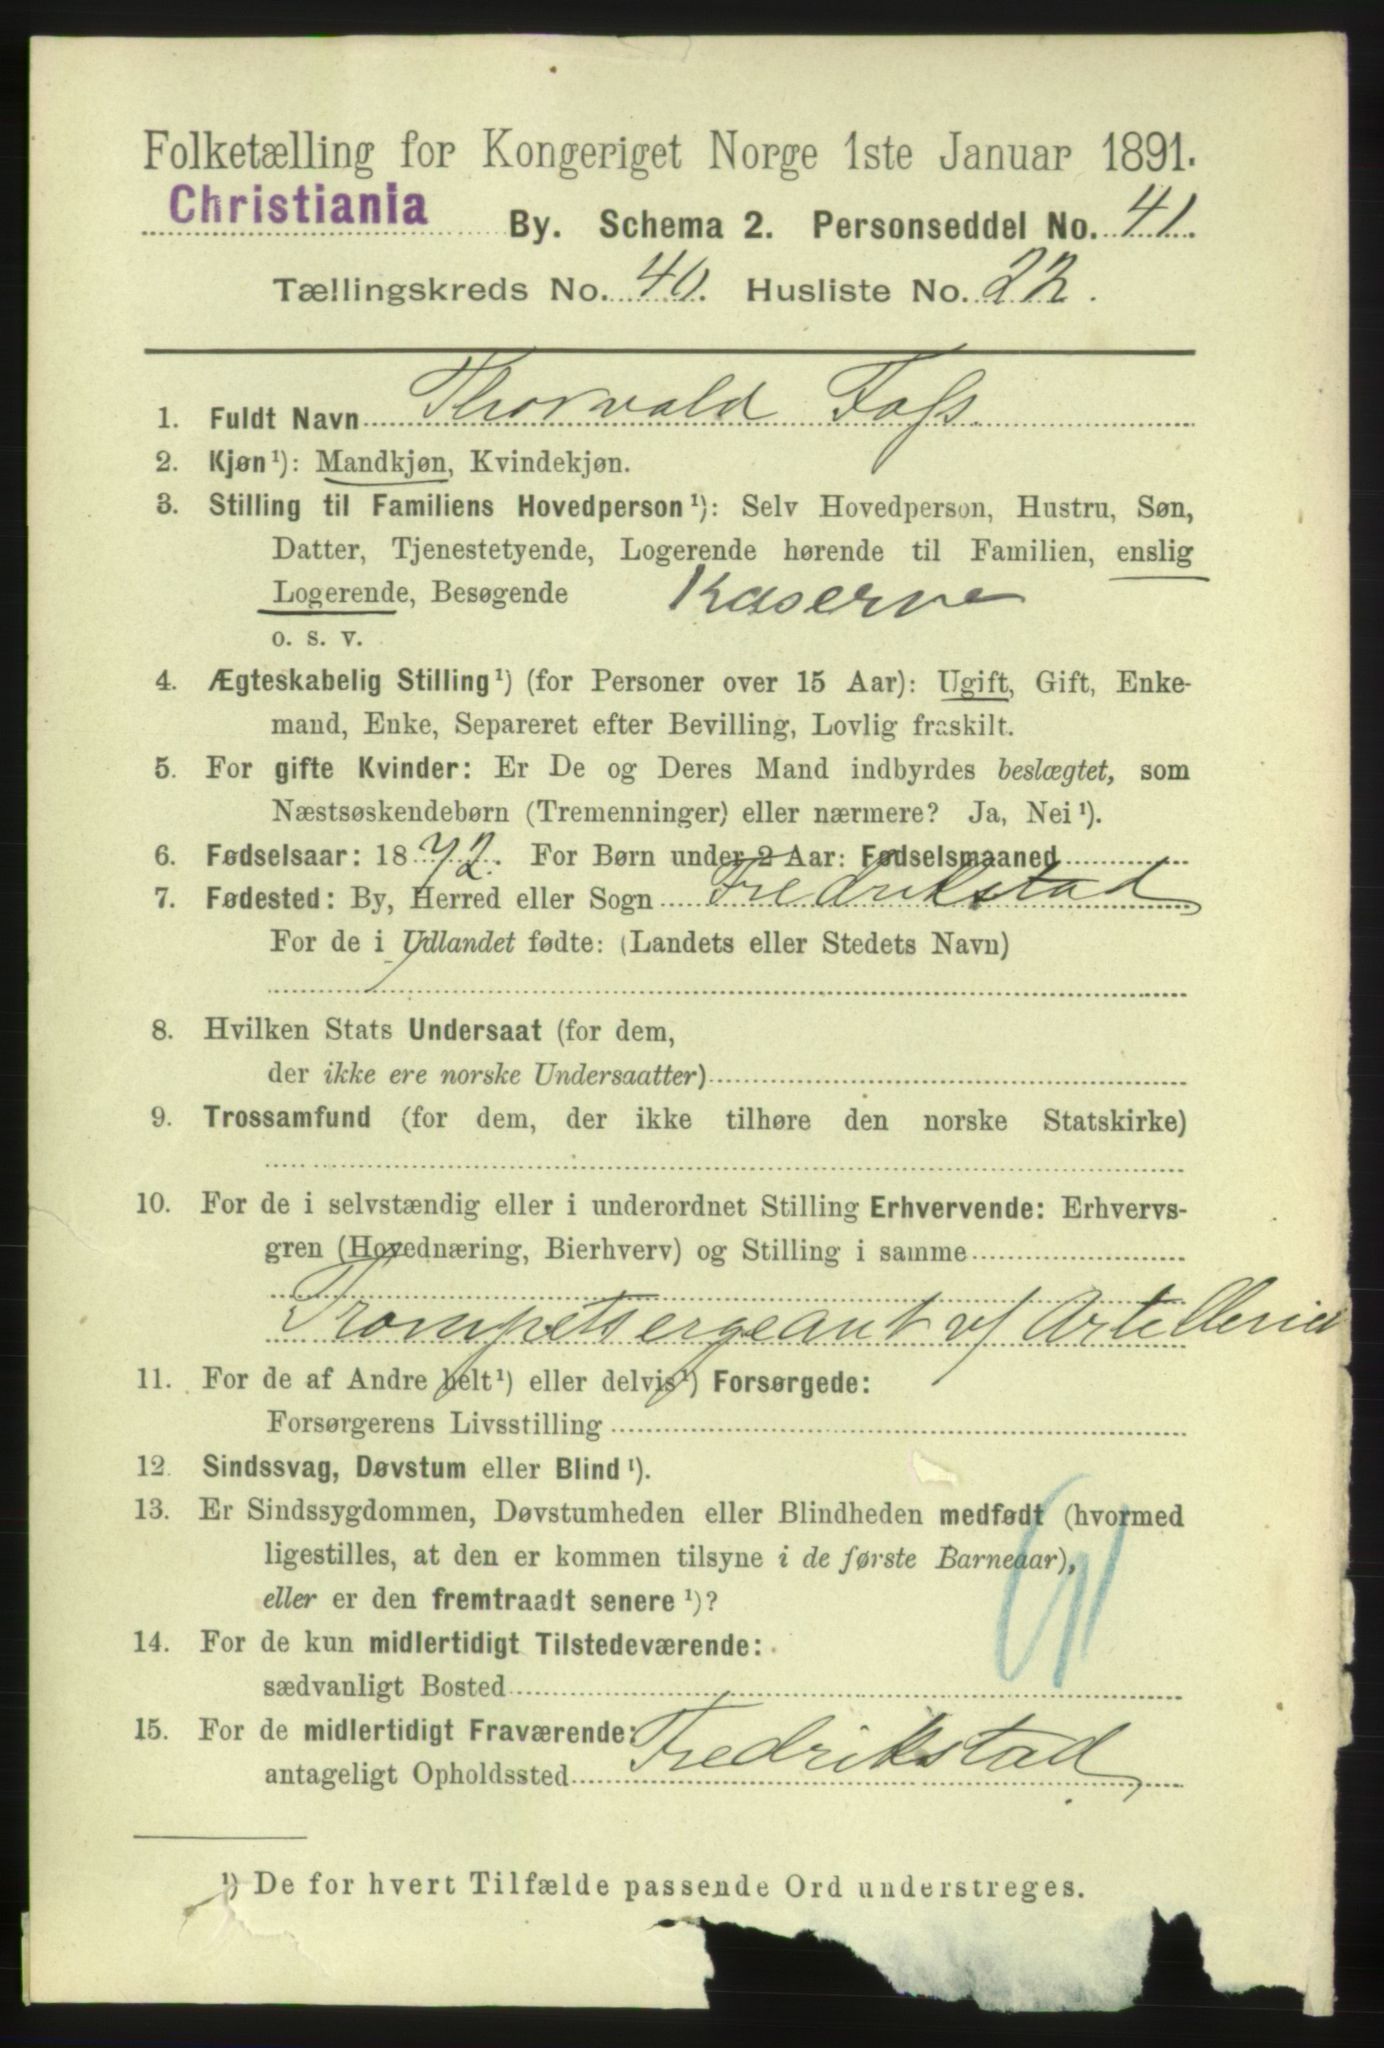 Folketælling for Kongeriget Norge 1ste Januar 1891.
Christiania By. Schema 2. Personseddel No. 41.
Tællingskreds No. 40. Husliste No. 22.
1. Fuldt Navn Thorvald Foss.
2. Kjøn¹): Mandkjøn, Kvindekjøn.
3. Stilling til Familiens Hovedperson¹): Selv Hovedperson, Hustru, Søn,
Datter, Tjenestetyende, Logerende hørende til Familien, enslig
Logerende, Besøgende Kaserne
o. s. v.
4. Ægteskabelig Stilling¹) (for Personer over 15 Aar): Ugift, Gift, Enke-
mand, Enke, Separeret efter Bevilling, Lovlig fraskilt.
5. For gifte Kvinder: Er De og Deres Mand indbyrdes beslægtet, som
Næstsøskendebørn (Tremenninger) eller nærmere? Ja, Nei¹).
6. Fødselsaar: 1872. For Børn under 2 Aar: Fødselsmaaned
7. Fødested: By, Herred eller Sogn Fredrikstad
For de i Udlandet fødte: (Landets eller Stedets Navn)
8. Hvilken Stats Undersaat (for dem,
der ikke ere norske Undersaatter)
9. Trossamfund (for dem, der ikke tilhøre den norske Statskirke)
10. For de i selvstændig eller i underordnet Stilling Erhvervende: Erhvervs-
gren (Hovednæring, Bierhverv) og Stilling i samme
Trompetsergeant vf Artelleriet
11. For de af Andre helt¹) eller delvis¹) Forsørgede:
Forsørgerens Livsstilling
12. Sindssvag, Døvstum eller Blind¹).
13. Er Sindssygdommen, Døvstumheden eller Blindheden medfødt (hvormed
ligestilles, at den er kommen tilsyne i de første Barneaar),
eller er den fremtraadt senere¹)?
14. For de kun midlertidigt Tilstedeværende:
sædvanligt Bosted
15. For de midlertidigt Fraværende:
antageligt Opholdssted Fredrikstad
¹) De for hvert Tilfælde passende Ord understreges.